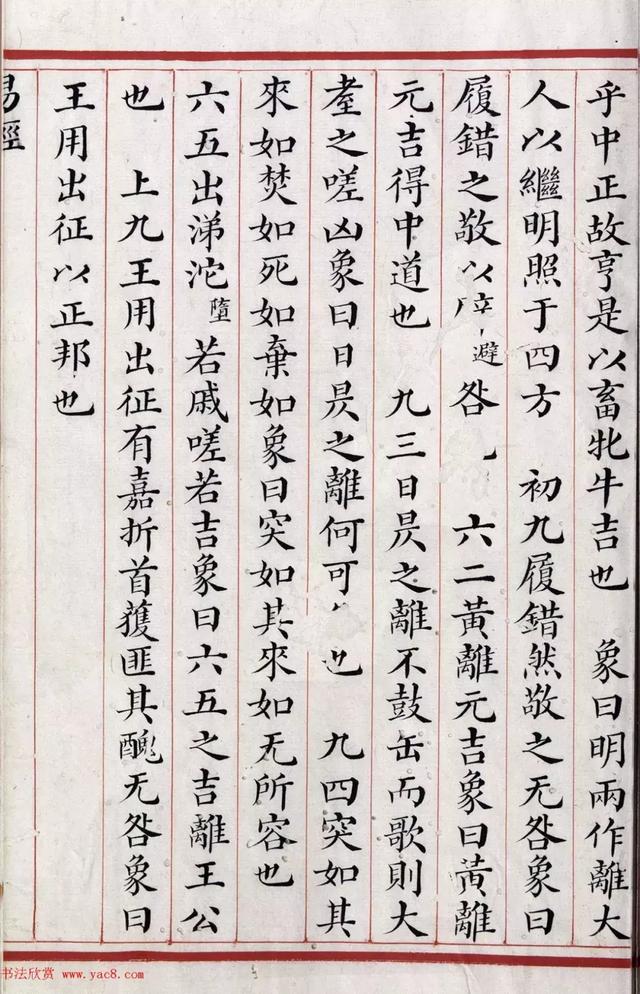 乎中正故亨是以畜牝牛吉也　象曰明兩作離大
人以繼明照于四方　初九履錯然敬之无咎象曰
履錯之敬以避咎　六二黃離元吉象曰黃離
元吉得中道也　九三日昃之離不鼓缶而歌則大
耋之嗟凶象曰日昃之離何可也　九四突如其
來如焚如死如棄如象曰突如其來如无所容也
六五出涕沱墮若戚嗟若吉象曰六五之吉離王公
也　上九王用出征有嘉折首獲匪其醜无咎象曰
王用出征以正邦也
易經
书法欣赏 www.yac8.com